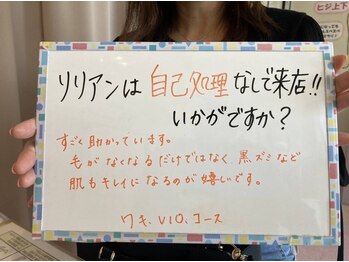 リリアンは自己処理なしで来店!!
いかがですか?
すごく助かっています。
毛がなくなるだけではなく、黒ズミなど
肌もキレイになるのが嬉しいです。
ワキ、VIO、コース
ヒジ上下